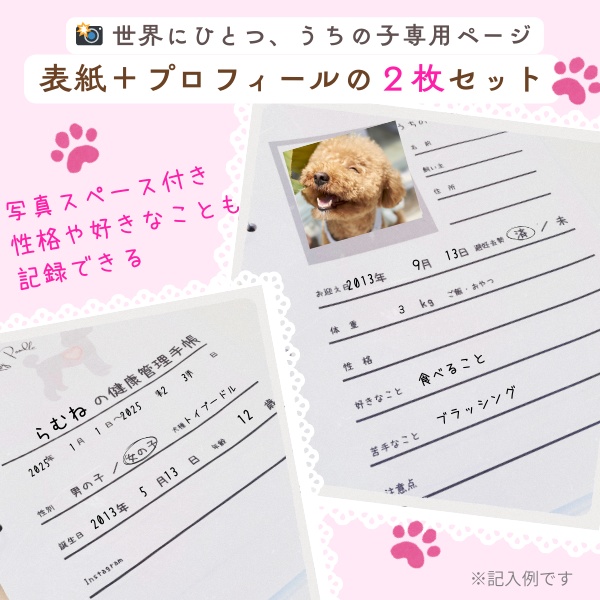 世界にひとつ、うちの子専用ページ
表紙＋プロフィールの２枚セット
写真スペース付き
性格や好きなことも
記録できる
名 前
飼い主
住 所
お迎え日2013年 9月 13日 避妊去勢 済 / 未
体 重 3 kg ご飯・おやつ
性 格
好きなこと 食べること
苦手なこと ブラッシング
注意点
らむね の健康管理手帳
2025年 1月 1日〜2025
性別 男の子 / 女の子 犬種 トイプードル
誕生日 2013年 5月13日 年齢 12 歳
Instagram
※記入例です